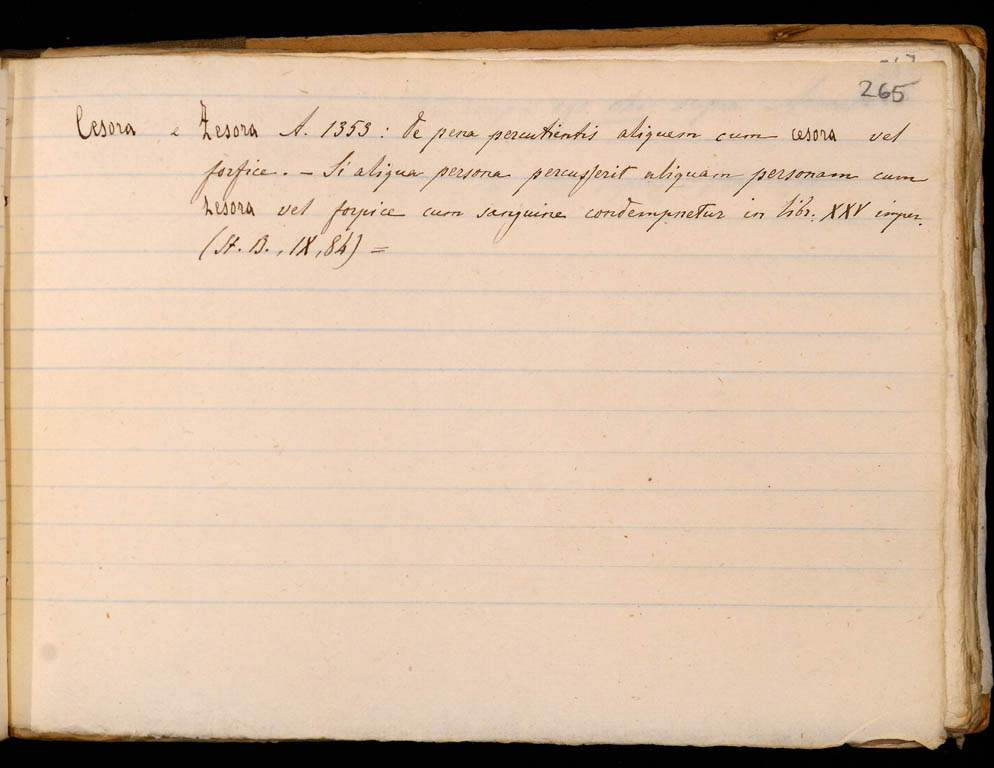 265
Cesora e Zesora A. 1353: de pena percutientis aliquem cum cesora vel
forfice. — Si aliqua persona percusserit aliquam personam cum
zesora vel forpice cum sanguine condempnetur in libr. XXV imper.
(St. B., IX, 84) =